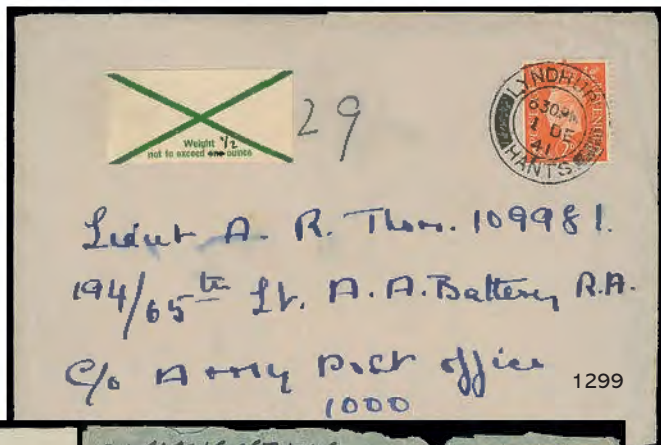 Weight 1/2
not to exceed one ounce
29
LYNDHUR
630PM
1 DE
41
HANTS.
PENC
Lieut A. R. Thom. 109981.
194/65th Lt. A.A. Battery R.A.
C/o Army Post office
1000
1299